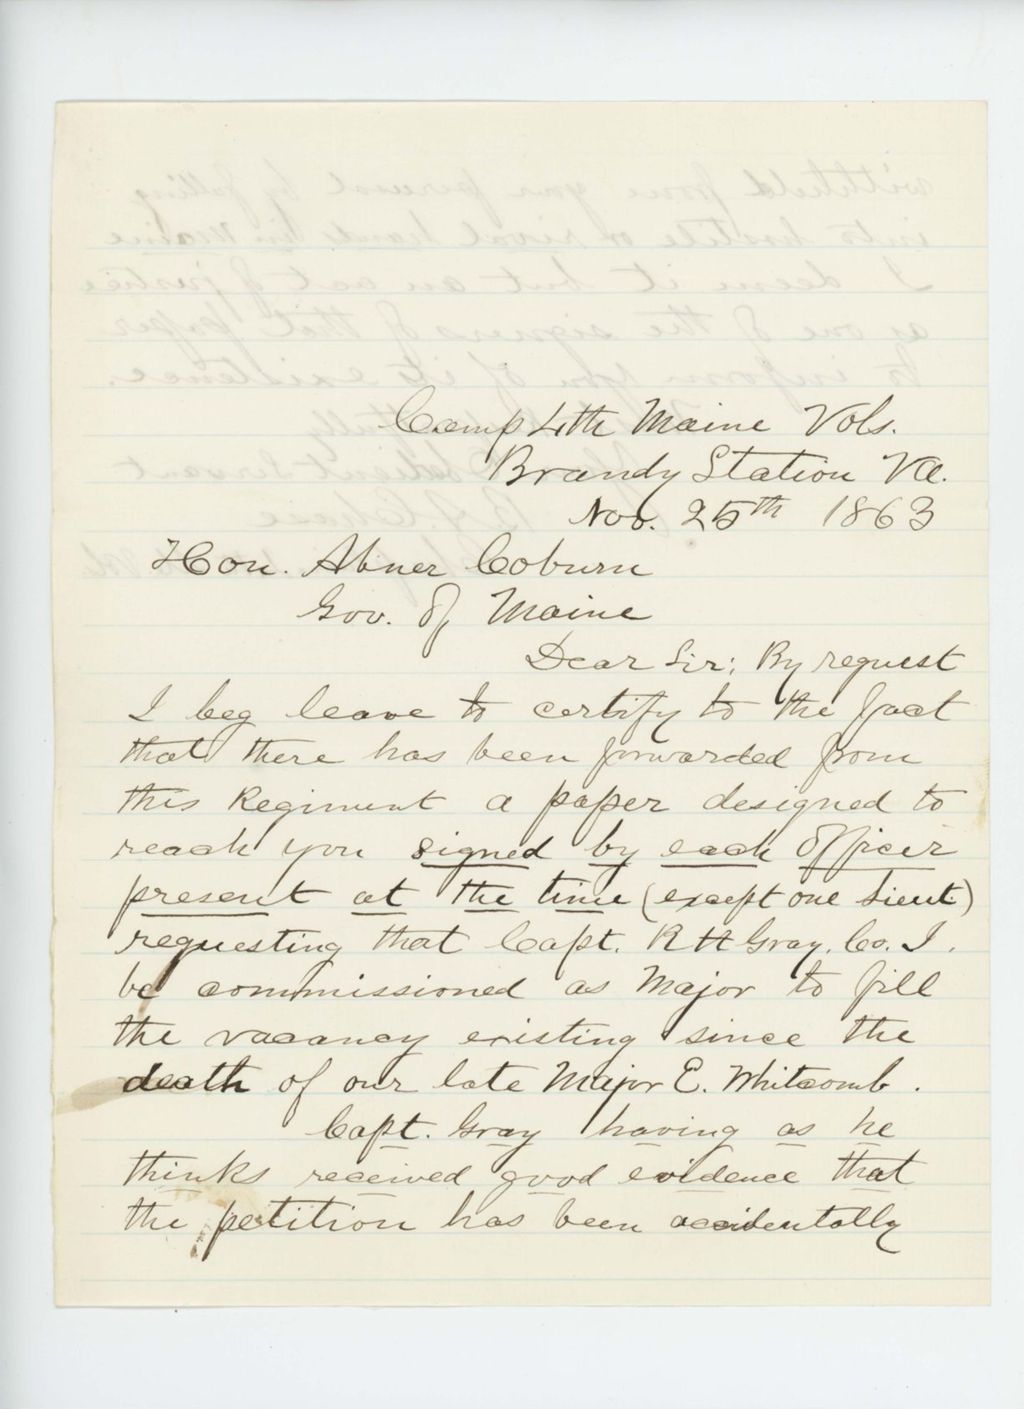 Camp 4th Maine Vols.
Brandy Station Va.
Nov. 25th 1863
Hon. Abner Coburn
Gov. of Maine
Dear Sir; By request
I beg leave to certify to the fact
that there has been forwarded from
this Regiment a paper designed to
reach you signed by each officer
present at the time (except one Lieut)
requesting that Capt. R H Gray. Co. I.
be commissioned as Major to fill
the vacancy existing since the
death of our late Major E. Whitcomb.
Capt. Gray having as he
thinks received good evidence that
the petition has been accidentally